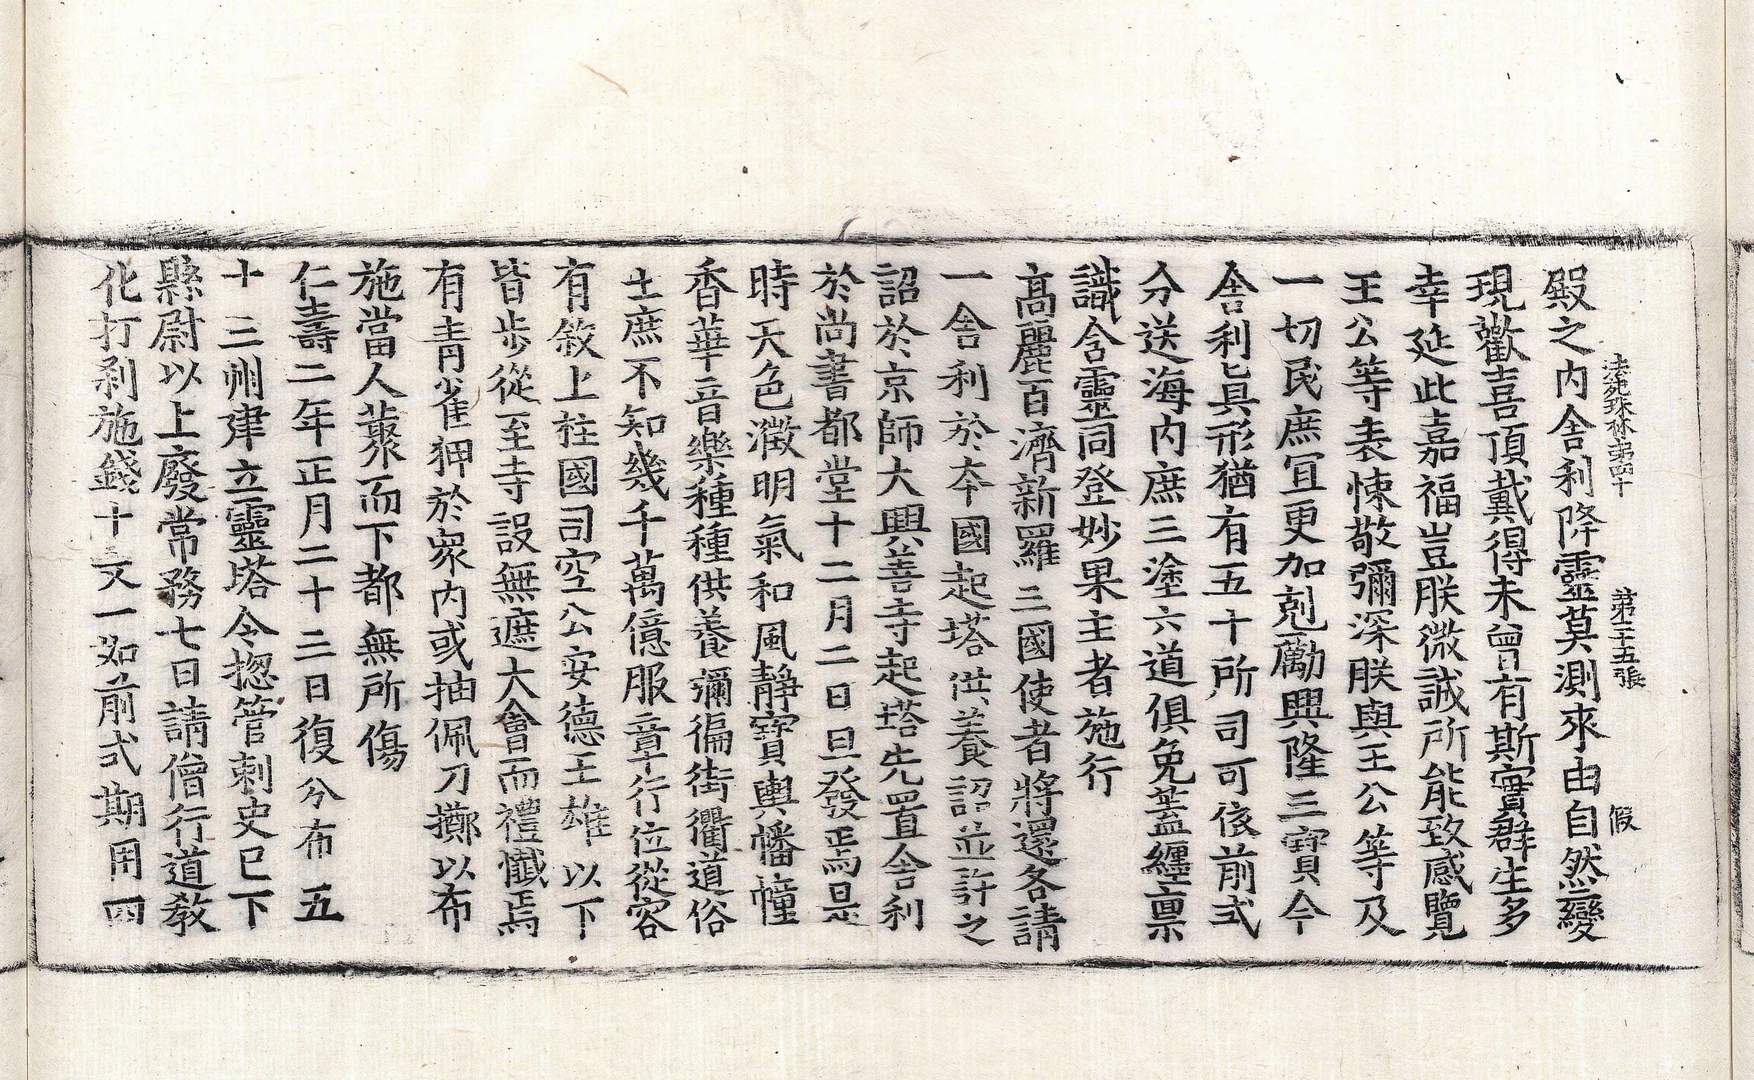 法苑珠林第四十 第二十五張 假
殿之内舍利降靈莫測來由自然變
現歡喜頂戴得未曾有斯實群生多
幸延此嘉福豈朕微誠所能致感覽
王公等表悚敬彌深朕與王公等及
一切民庶冝更加剋勵興隆三寶今
舍利眞形猶有五十所司可依前式
分送海内庶三塗六道俱免蓋纏稟
識含靈同登妙果主者施行
高麗百濟新羅三國使者將還各請
一舍利於本國起塔供養詔並許之
詔於京師大興善寺起塔先置舍利
於尚書都堂十二月二日旦發焉是
時天色澂明氣和風静寶輿幡幢
香華音樂種種供養彌徧街衢道俗
士庶不知幾千萬億服章行位從容
有敘上柱國司空公安德王雄以下
皆步從至寺設無遮大會而禮懺焉
有青雀狎於衆内或抽佩刀擲以布
施當人藂而下都無所傷
仁壽二年正月二十三日復分布五
十三州建立靈塔令揔管刺史已下
縣尉以上廢常務七日請僧行道教
化打刹施錢十文一如前式期用四